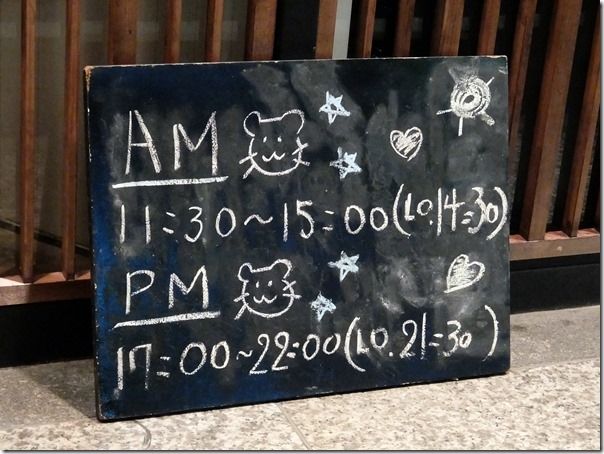 AM
11:30~15:00(LO.14:30)
PM
17:00~22:00(LO.21:30)